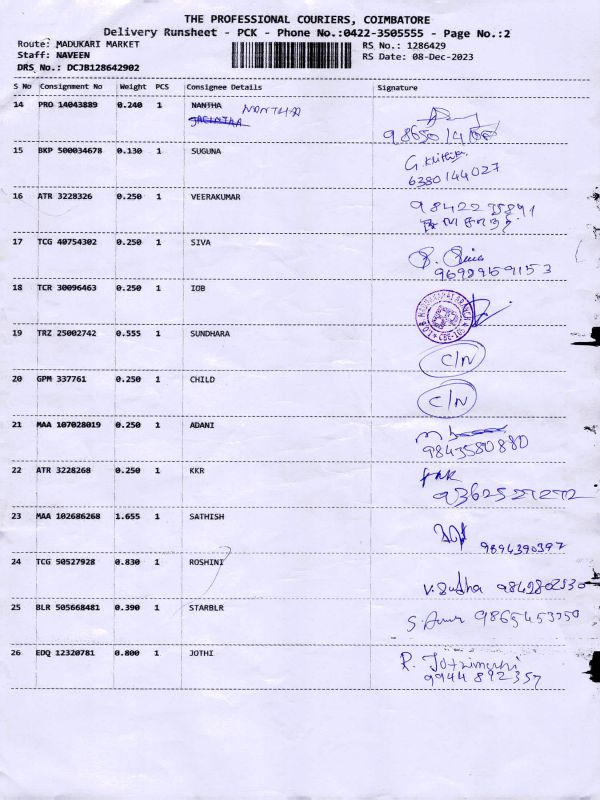 THE PROFESSIONAL COURIERS, COIMBATORE
Delivery Runsheet - PCK - Phone No.:0422-3505555 - Page No.:2
Route: MADUKARI MARKET
RS No.: 1286429
Staff: NAVEEN
RS Date: 08-Dec-2023
DRS No.: DCJB128642902
S No Consignment No Weight PCS Consignee Details Signature
14 PRO 14043889 0.240 1 NANTHA NANTHA
JACINTAA
15 BKP 500034678 0.130 1 SUGUNA
6380144027
16 ATR 3228326 0.250 1 VEERAKUMAR
17 TCG 40754302 0.250 1 SIVA
S. Siva
9699959153
18 TCR 30096463 0.250 1 IOB
19 TRZ 25002742 0.555 1 SUNDHARA
C/N
20 GPM 337761 0.250 1 CHILD
C/N
21 MAA 107028019 0.250 1 ADANI
9843580880
22 ATR 3228268 0.250 1 KKR
9362527272
23 MAA 102686268 1.655 1 SATHISH
9894390397
24 TCG 50527928 0.830 1 ROSHINI
V. Sudha 9842802330
25 BLR 505668481 0.390 1 STARBLR
9865453750
26 EDQ 12320781 0.800 1 JOTHI
R. Jothimani
9944892357